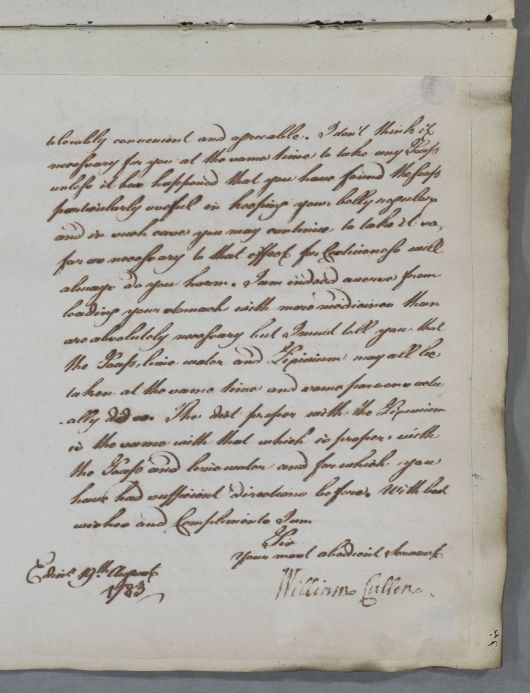 tolerably convenient and agreeable. I don't think it
necessary for you at the same time to take any Soap
unless it has happened that you have found the soap
particularly useful in keeping your belly regular
and in such case you may continue to take it so
far as necessary to that effect for Costiveness will
always do you harm. I am indeed averse from
loading your stomach with more medicines than
are absolutely necessary but I must tell you that
the Soap, lime water and Lixivium may all be
taken at the same time and some persons actu
ally do so. The diet proper with the Lixivium
is the same with that which is proper with
the Soap and lime water and for which you
have had sufficient directions before. With best
wishes and Compliments I am
Sir
Your most obedient Servant
William Cullen.
Edinr. 19th August
1783